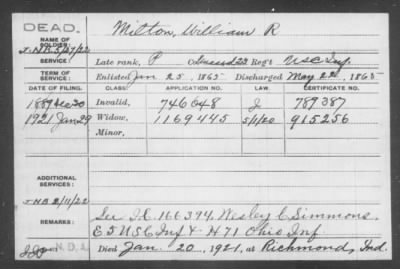 DEAD.
NAME OF SOLDIER: Milton, William R
N B 5/27/22
SERVICE: Late rank, P Unassd 23 Reg't USC Inf
TERM OF SERVICE: Enlisted Jan 25, 1865 Discharged May 22, 1865
DATE OF FILING. CLASS. APPLICATION NO. LAW. CERTIFICATE NO.
1887 30 Invalid, 746048 J 789387
1921 Jan 29 Widow, 1169445 5/1/20 915256
Minor,
ADDITIONAL SERVICES:
N B 2/11/22
REMARKS: See I.C. 166394, Wesley C Simmons,
E 5 USC Inf & H 71 Ohio Inf.
N.B. 2
Died Jan 20, 1921, at Richmond, Ind.